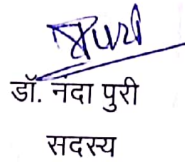 डॉ. नंदा पुरी
सदस्य